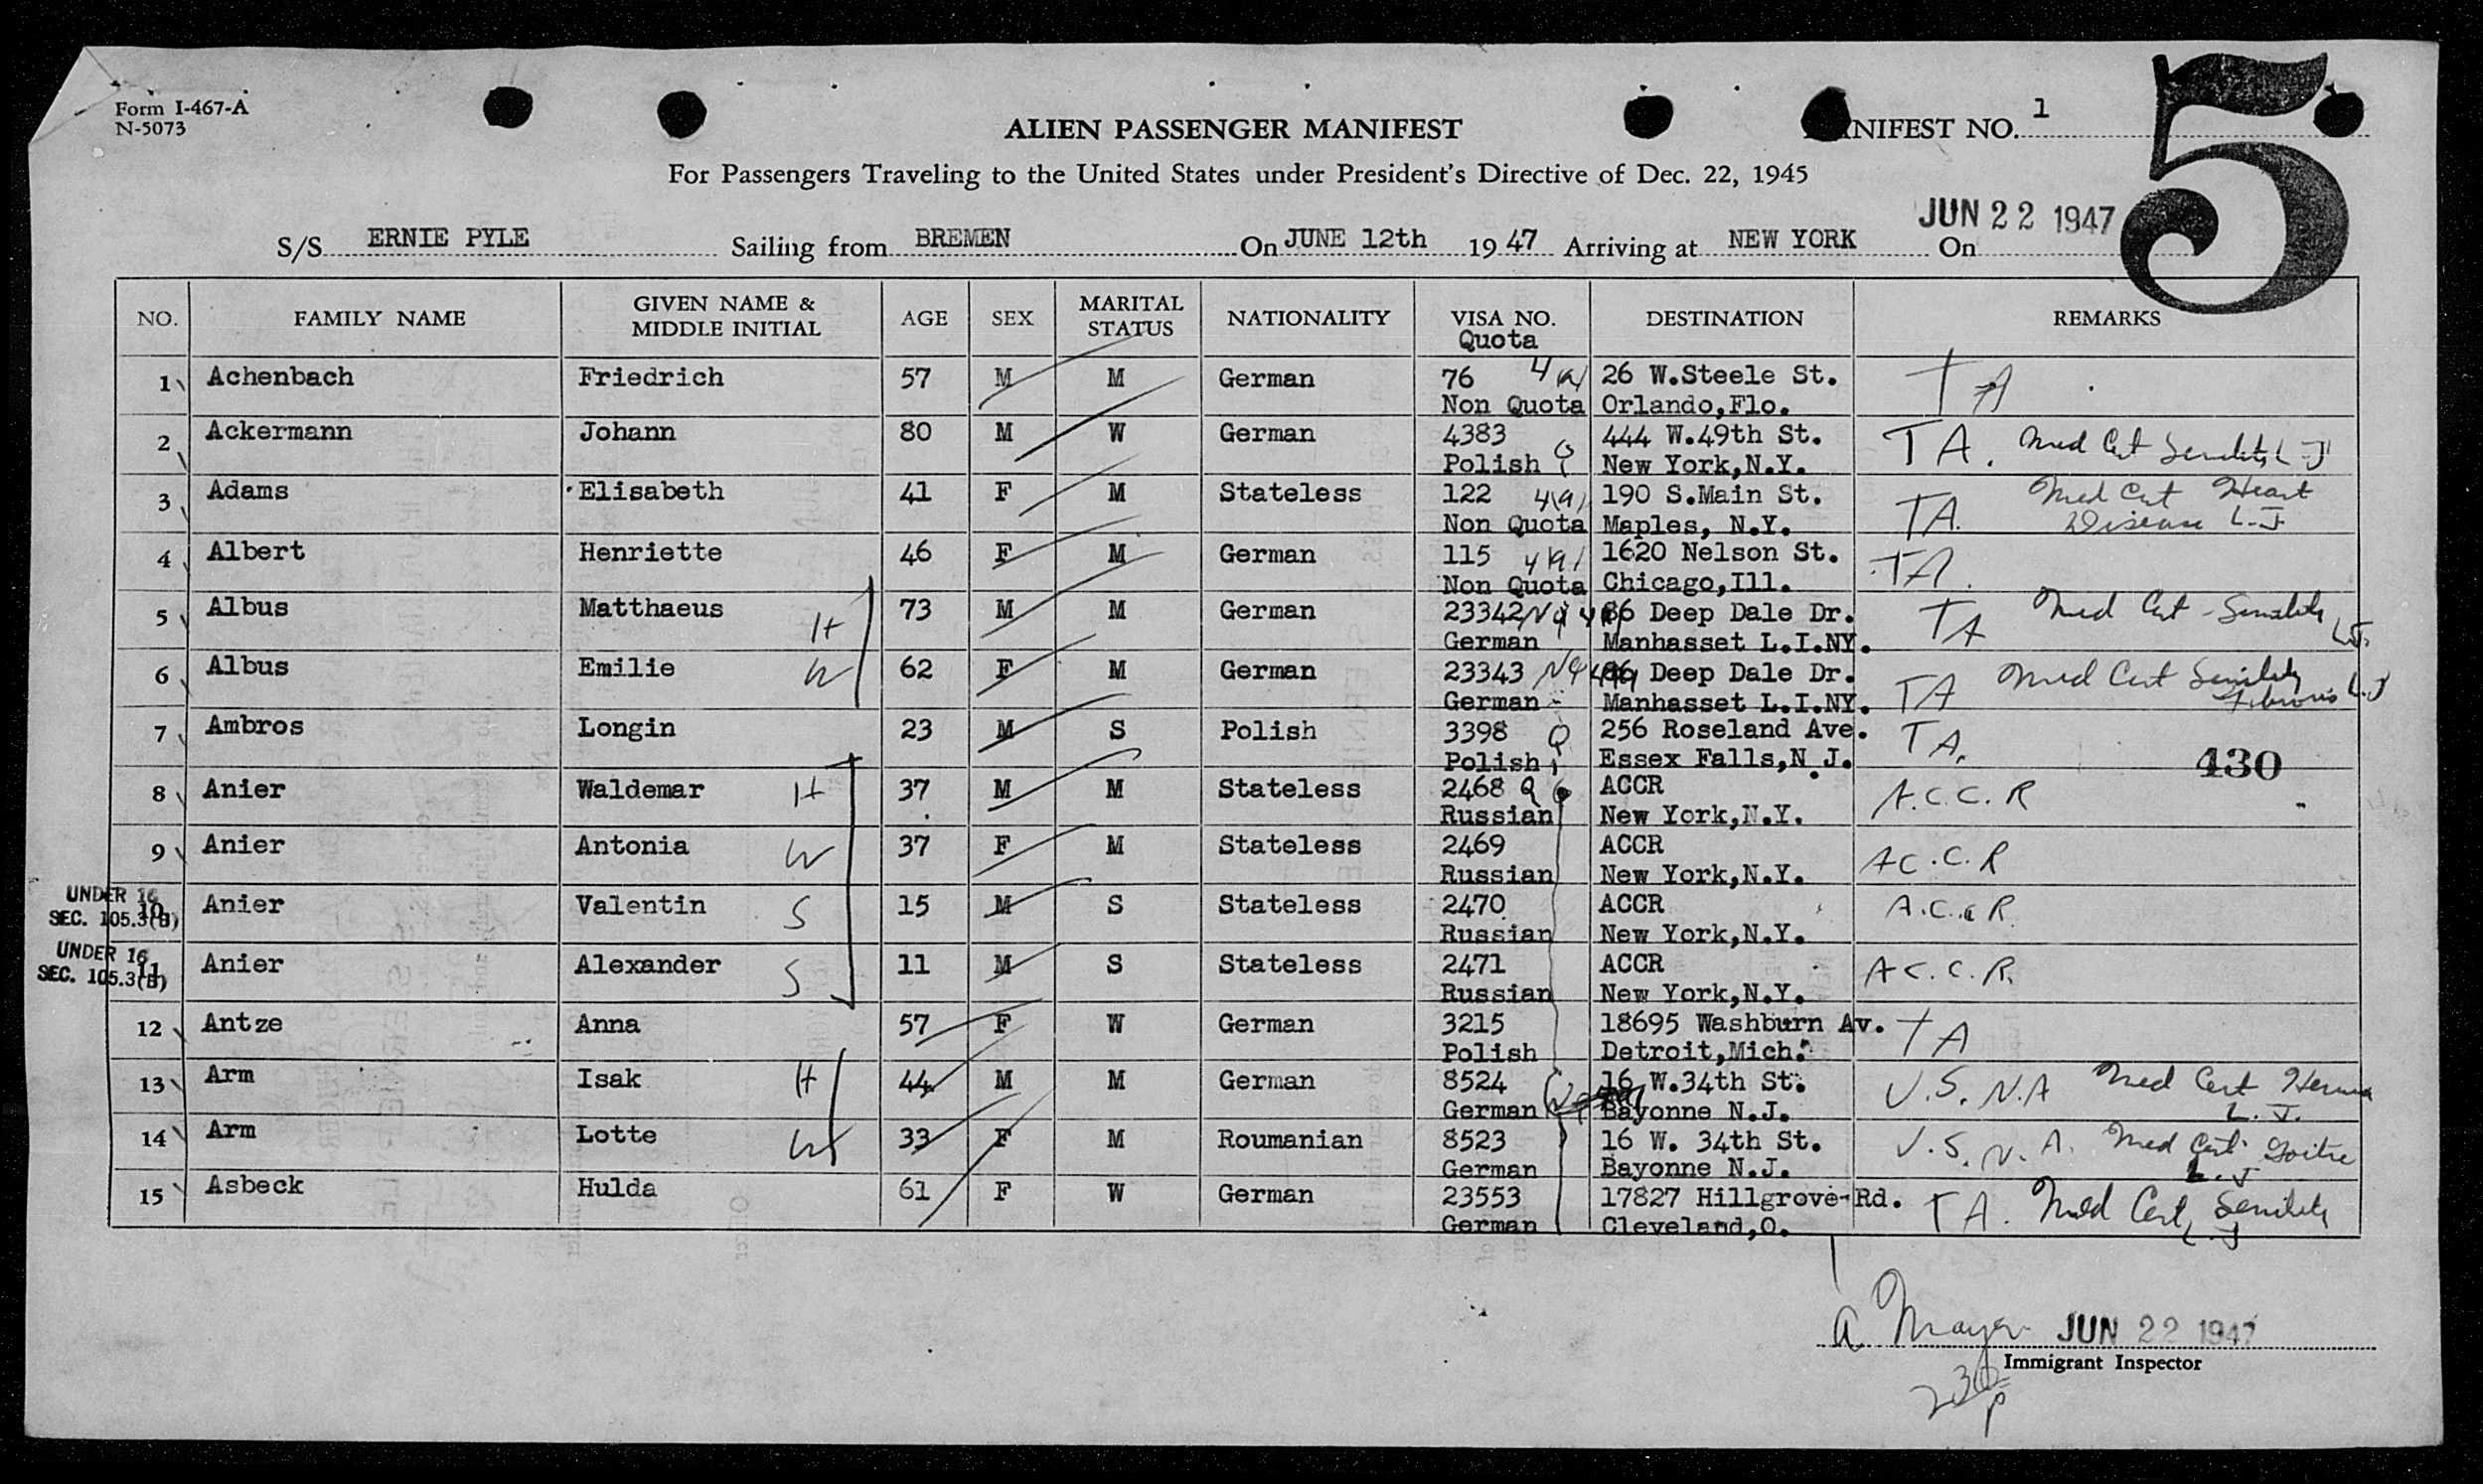 Form I-467-A
N-5073
ALIEN PASSENGER MANIFEST
NIFEST NO. 1
5
For Passengers Traveling to the United States under President's Directive of Dec. 22, 1945
JUN 22 1947
S/S ERNIE PYLE Sailing from BREMEN On JUNE 12th 1947 Arriving at NEW YORK On
NO. FAMILY NAME GIVEN NAME & MIDDLE INITIAL AGE SEX MARITAL STATUS NATIONALITY VISA NO. Quota DESTINATION REMARKS
1 Achenbach Friedrich 57 M M German 76 26 W.Steele St. TA
Non Quota Orlando,Flo.
2 Ackermann Johann 80 M W German 4383 444 W.49th St. TA. Med Cert Senility L.J
Polish Q New York,N.Y.
3 Adams Elisabeth 41 F M Stateless 122 190 S.Main St. TA. Med Cert Heart
Non Quota Maples, N.Y. Disease L.J
4 Albert Henriette 46 F M German 115 1620 Nelson St. TA.
Non Quota Chicago,Ill.
5 Albus Matthaeus H 73 M M German 23342 86 Deep Dale Dr. TA Med Cert Senility L.J.
German Manhasset L.I.NY.
6 Albus Emilie W 62 F M German 23343 Deep Dale Dr. TA Med Cert Senility L.J
German Manhasset L.I.NY.
7 Ambros Longin 23 M S Polish 3398 Q 256 Roseland Ave. TA.
Polish Essex Falls,N.J. 430
8 Anier Waldemar H 37 M M Stateless 2468 Q ACCR A.C.C.R
Russian New York,N.Y.
9 Anier Antonia W 37 F M Stateless 2469 ACCR AC.C.R
Russian New York,N.Y.
UNDER 16
SEC. 105.3(B)
10 Anier Valentin S 15 M S Stateless 2470 ACCR A.C.C R
Russian New York,N.Y.
UNDER 16
SEC. 105.3(B)
11 Anier Alexander S 11 M S Stateless 2471 ACCR AC.C.R.
Russian New York,N.Y.
12 Antze Anna 57 F W German 3215 18695 Washburn Av. TA
Polish Detroit,Mich.
13 Arm Isak H 44 M M German 8524 16 W.34th St. U.S.N.A Med Cert Hernia
German Bayonne N.J. L.J.
14 Arm Lotte W 33 F M Roumanian 8523 16 W. 34th St. U.S.N.A. Med Cert Goitre
German Bayonne N.J. L.J
15 Asbeck Hulda 61 F W German 23553 17827 Hillgrove-Rd. TA. Med Cert Senility
German Cleveland,O. L.J
A Mayer JUN 22 1947
Immigrant Inspector